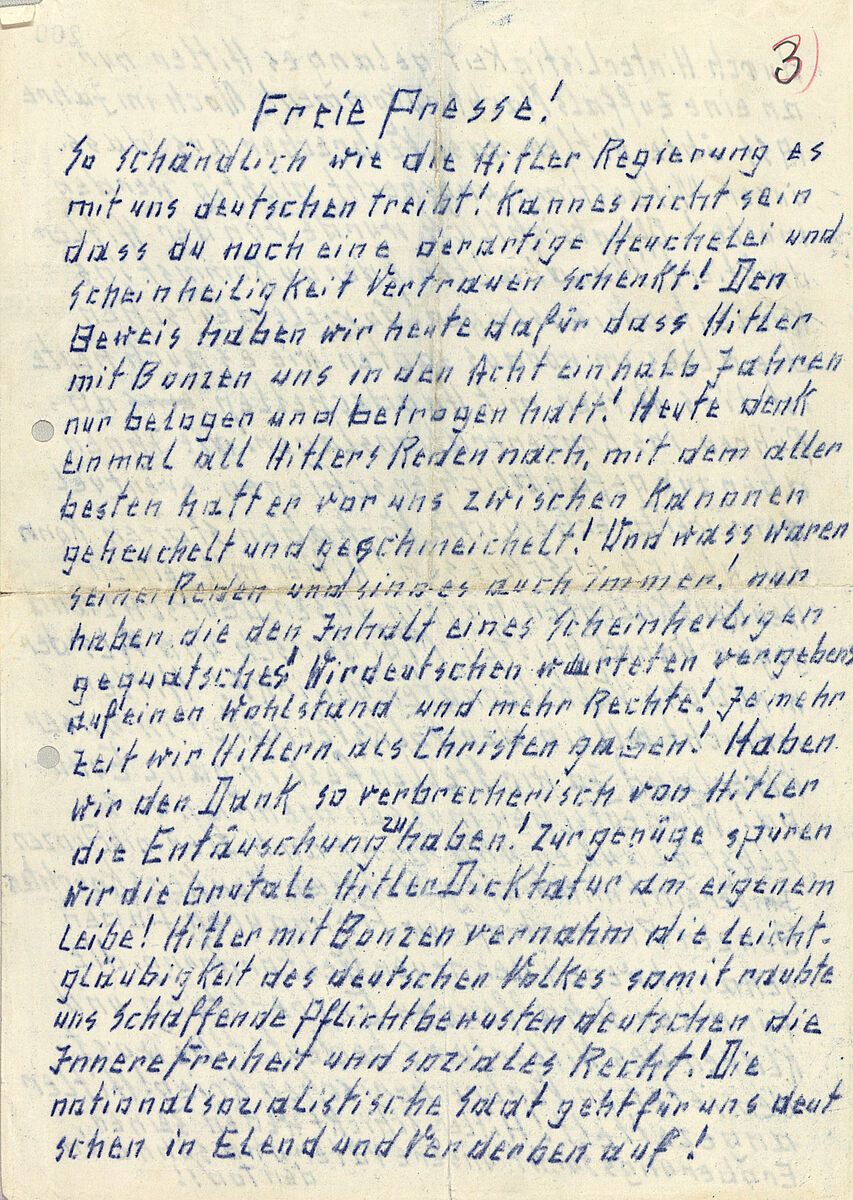 3)
Freie Presse!
So schändlich wie die Hitler Regierung es
mit uns deutschen treibt! Kann es nicht sein
dass du noch eine derartige Heuchelei und
scheinheiligkeit Vertrauen schenkt! Den
Beweis haben wir heute dafür dass Hitler
mit Bonzen uns in den Acht einhalb Jahren
nur belogen und betrogen hatt! Heute denk
einmal all Hitlers Reden nach, mit dem aller
besten hatt er vor uns zwischen Kanonen
geheuchelt und geschmeichelt! Und wass waren
seine Reden und sind es auch immer! nur
haben die den Inhalt eines Scheinheiligen
gequatsches! Wir deutschen warteten vergebens
auf einen Wohlstand und mehr Rechte! Je mehr
Zeit wir Hitlern als Christen gaben! Haben
wir den Dank so verbrecherisch von Hitler
die Entäuschung zu haben! Zur genüge spüren
wir die brutale Hitler Dicktatur am eigenem
Leibe! Hitler mit Bonzen vernahm die leicht-
gläubigkeit des deutschen Volkes somit raubte
uns Schaffende Pflichtbewusten deutschen die
Innere Freiheit und soziales Recht! Die
nationalsozialistische Saat geht für uns deut
schen in Elend und Verderben auf!